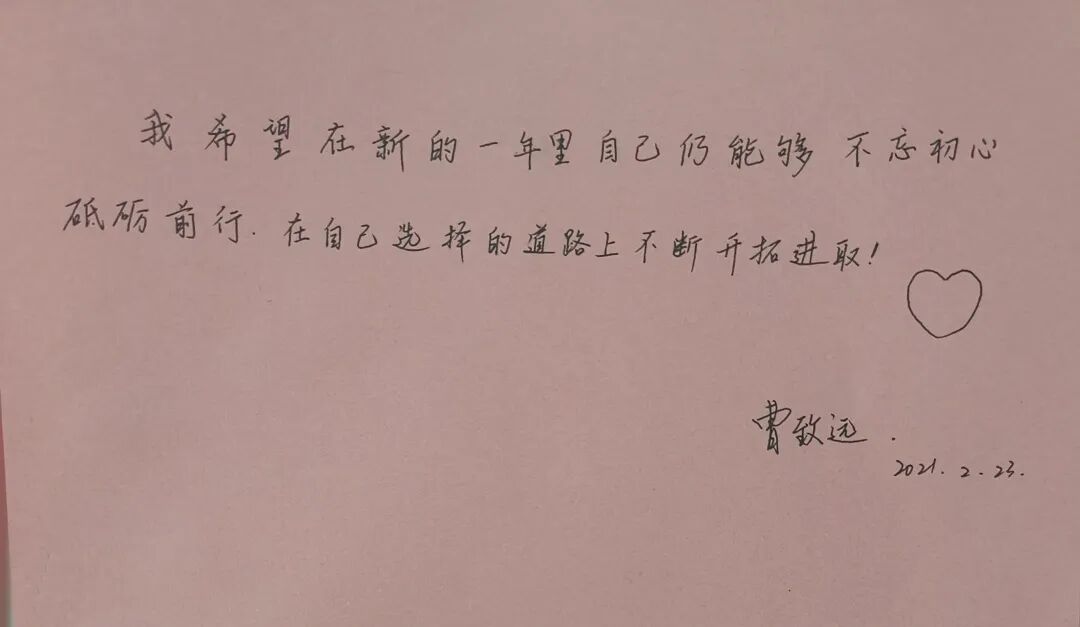 我希望在新的一年里自己仍能够不忘初心
砥砺前行.在自己选择的道路上不断开拓进取!
曹致远.
2021.2.23.